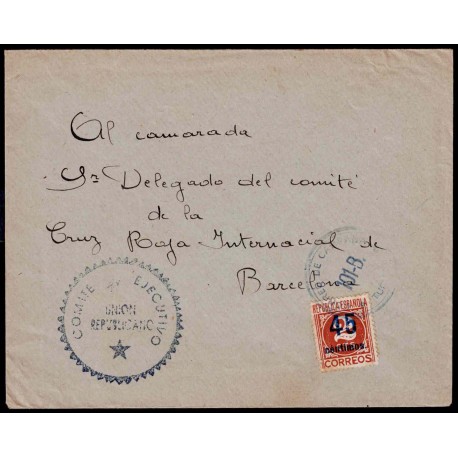 Al camarada
Sr Delegado del comité
de la
Cruz Roja Internacional de
Barcelona
COMITE EJECUTIVO
UNION
REPUBLICANO
101-B.
REPUBLICA ESPAÑOLA
45
centimos
CORREOS